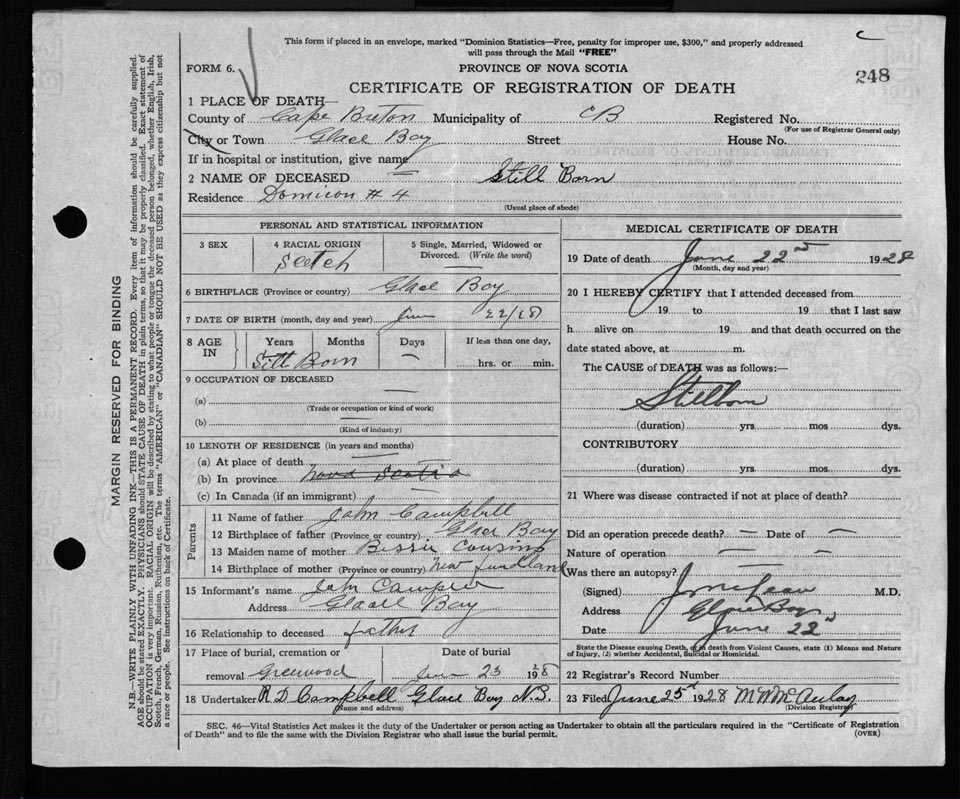 This form if placed in an envelope, marked "Dominion Statistics—Free, penalty for improper use, $300," and properly addressed
will pass through the Mail "FREE"
FORM 6.
PROVINCE OF NOVA SCOTIA
248
CERTIFICATE OF REGISTRATION OF DEATH
1 PLACE OF DEATH—
County of Cape Breton Municipality of CB Registered No.
(For use of Registrar General only)
City or Town Glace Bay Street House No.
If in hospital or institution, give name
2 NAME OF DECEASED Still Born
Residence Dominion # 4
(Usual place of abode)
PERSONAL AND STATISTICAL INFORMATION
3 SEX
4 RACIAL ORIGIN
Scotch
5 Single, Married, Widowed or Divorced. (Write the word)
6 BIRTHPLACE (Province or country) Glace Bay
7 DATE OF BIRTH (month, day and year) June 22/28
8 AGE IN
Years Months Days If less than one day,
Still Born — hrs. or min.
9 OCCUPATION OF DECEASED
(a) —
(Trade or occupation or kind of work)
(b) —
(Kind of industry)
10 LENGTH OF RESIDENCE (in years and months)
(a) At place of death —
(b) In province Nova Scotia
(c) In Canada (if an immigrant) —
Parents
11 Name of father John Campbell
12 Birthplace of father (Province or country) Glace Bay
13 Maiden name of mother Bessie Cousins
14 Birthplace of mother (Province or country) New Fundland
15 Informant's name John Campbell
Address Glace Bay
16 Relationship to deceased father
17 Place of burial, cremation or removal Greenwood
Date of burial
June 23 1928
18 Undertaker R D Campbell Glace Bay N.S.
(Name and address)
MEDICAL CERTIFICATE OF DEATH
19 Date of death June 22nd 1928
(Month, day and year)
20 I HEREBY CERTIFY that I attended deceased from
19 to 19 that I last saw
h alive on 19 and that death occurred on the
date stated above, at m.
The CAUSE of DEATH was as follows:—
Stillborn
(duration) yrs mos dys.
CONTRIBUTORY
(duration) yrs mos dys.
21 Where was disease contracted if not at place of death?
Did an operation precede death? — Date of —
Nature of operation —
Was there an autopsy? —
(Signed) M.D.
Address Glace Bay
Date June 22nd
State the Disease causing Death, or in death from Violent Causes, state (1) Means and Nature
of Injury, (2) whether Accidental, Suicidal or Homicidal.
22 Registrar's Record Number
23 Filed June 25th 1928 M McAulay
(Division Registrar)
SEC. 46—Vital Statistics Act makes it the duty of the Undertaker or person acting as Undertaker to obtain all the particulars required in the "Certificate of Registration
of Death" and to file the same with the Division Registrar who shall issue the burial permit.
(OVER)
MARGIN RESERVED FOR BINDING
N.B.—WRITE PLAINLY WITH UNFADING INK—THIS IS A PERMANENT RECORD. Every item of information should be carefully supplied.
AGE should be stated EXACTLY. PHYSICIANS should STATE CAUSE OF DEATH in plain terms, so that it may be properly classified. Exact statement of
OCCUPATION is very important. RACIAL ORIGIN will be described by stating to what people or tongue the deceased person belonged, whether English, Irish,
Scotch, French, German, Russian, Ruthenian, etc. The terms "AMERICAN" or "CANADIAN" SHOULD NOT BE USED as they express citizenship but not
a race or people. See instructions on back of Certificate.